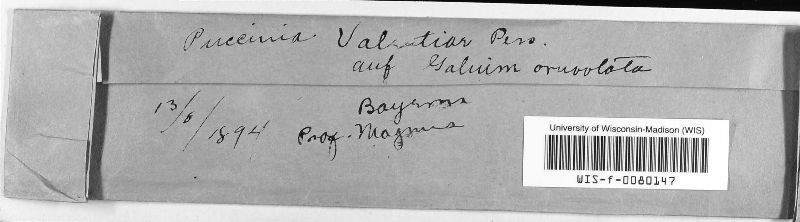 Puccinia Valantiae Pers.
auf Galium
13/6/1894
Bayerna
Prof. Magnus
University of Wisconsin-Madison (WIS)
WIS-f-0080147